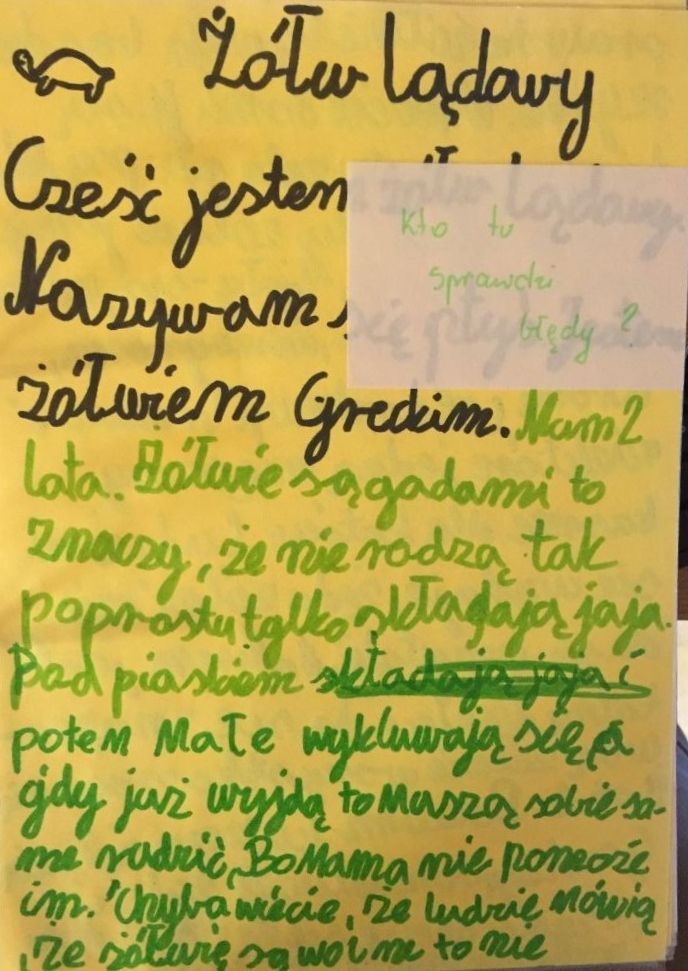 Żółw lądowy
Cześć jestem żółw lądowy.
Kto tu
sprawdzi
błędy ?
Nazywam się Jestem
żółwiem Greckim. Mam 2
lata. Żółwie są gadami to
znaczy, że nie rodzą tak
poprostu tylko składają jaja.
Pod piaskiem składają jaja i
potem Małe wykluwają się, a
gdy już wyjdą to Muszą sobie sa-
me radzić, Bo Mama nie pomoże
im. Chyba wiecie, że ludzie mówią
, że żółwie są wolne to nie